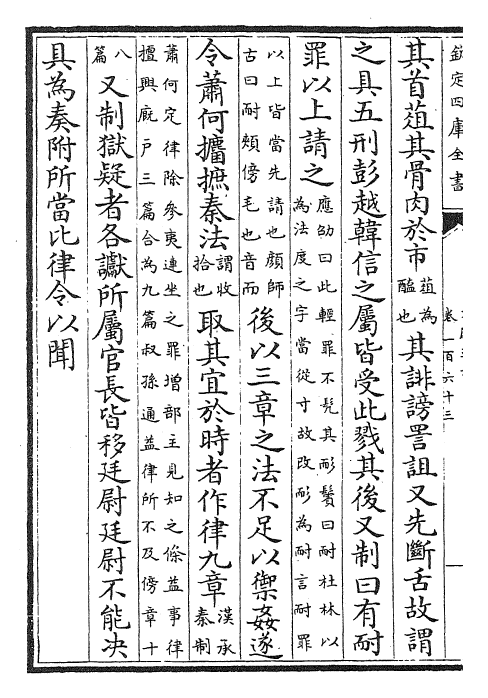 欽定四庫全書
卷一百六十三
其首葅其骨肉於市葅為醢也其誹謗詈詛又先斷舌故謂
之具五刑彭越韓信之屬皆受此戮其後又制曰有耐
罪以上請之應劭曰此輕罪不髠其耏鬢曰耐杜林以為法度之字當從寸故改耏為耐言耐罪
以上皆當先請也顏師古曰耐頰傍毛也音而後以三章之法不足以禦姦遂
令蕭何攟摭秦法謂收拾也取其宜於時者作律九章漢承秦制
蕭何定律除參夷連坐之罪增部主見知之條益事律擅興廐戶三篇合為九篇叔孫通益律所不及傍章十
八篇又制獄疑者各讞所屬官長皆移廷尉廷尉不能决
具為奏附所當比律令以聞